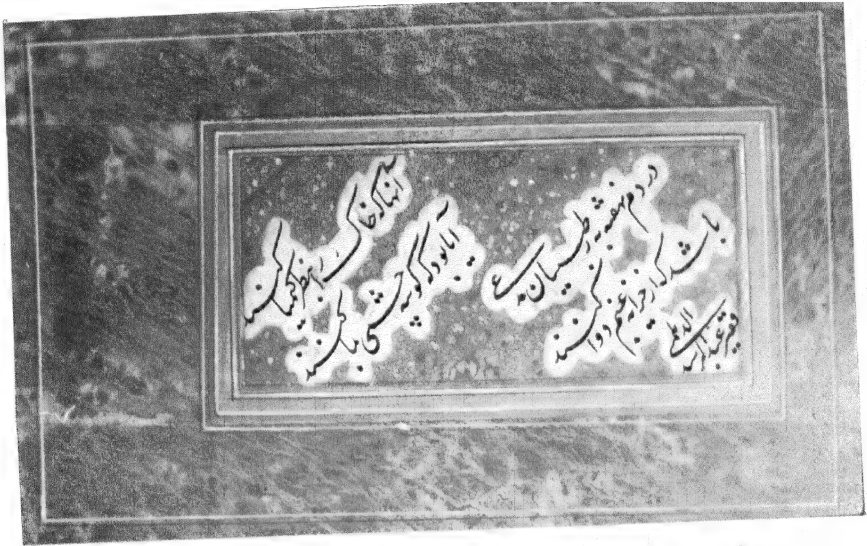 آنها که خاک را بنظر کیمیا کنند
آیا بود که گوشه چشمی بما کنند
دردم نهفته به ز طبیبان مدعی
باشد که از خزانه غیبم دوا کنند
فقیر عبدالرشید الدیلمی